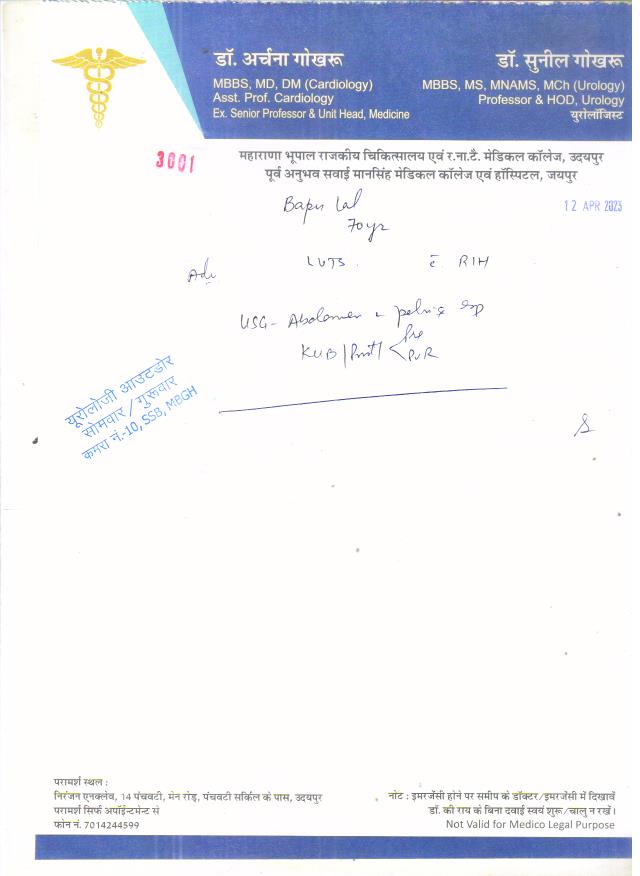 डॉ. अर्चना गोखरू
MBBS, MD, DM (Cardiology)
Asst. Prof. Cardiology
Ex. Senior Professor & Unit Head, Medicine
डॉ. सुनील गोखरू
MBBS, MS, MNAMS, MCh (Urology)
Professor & HOD, Urology
यूरोलॉजिस्ट
3001
महाराणा भूपाल राजकीय चिकित्सालय एवं र.ना.टै. मेडिकल कॉलेज, उदयपुर
पूर्व अनुभव सवाई मानसिंह मेडिकल कॉलेज एवं हॉस्पिटल, जयपुर
12 APR 2023
Bapu Lal
70yr
LUTS c̄ RIH
Adv
USG- Abdomen & pelvis
KUB/Prost/ < Pre
PVR
यूरोलोजी आउटडोर
सोमवार / गुरूवार
कमरा नं.-10, SSB, MBGH
परामर्श स्थल :
निरंजन एनक्लेव, 14 पंचवटी, मेन रोड़, पंचवटी सर्किल के पास, उदयपुर
परामर्श सिर्फ अपॉईन्टमेन्ट से
फोन नं. 7014244599
नोट : इमरजेंसी होने पर समीप के डॉक्टर/इमरजेंसी में दिखावें
डॉ. की राय के बिना दवाई स्वयं शुरू/चालु न रखें।
Not Valid for Medico Legal Purpose